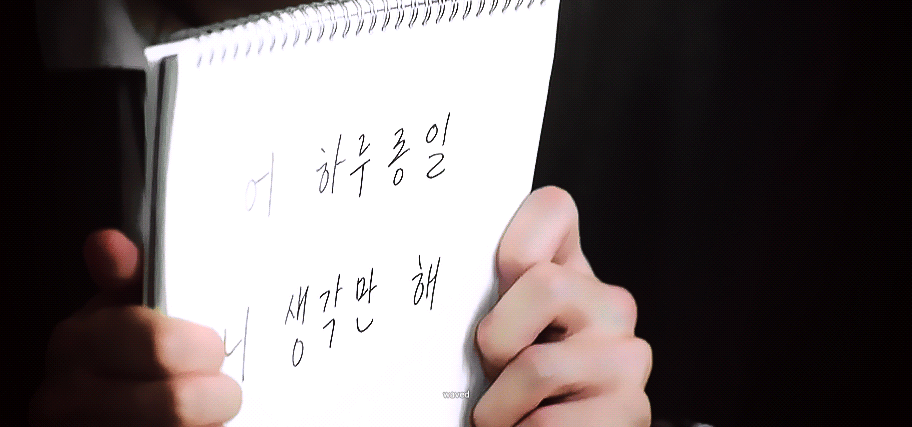 어 하루종일
니 생각만 해
waved